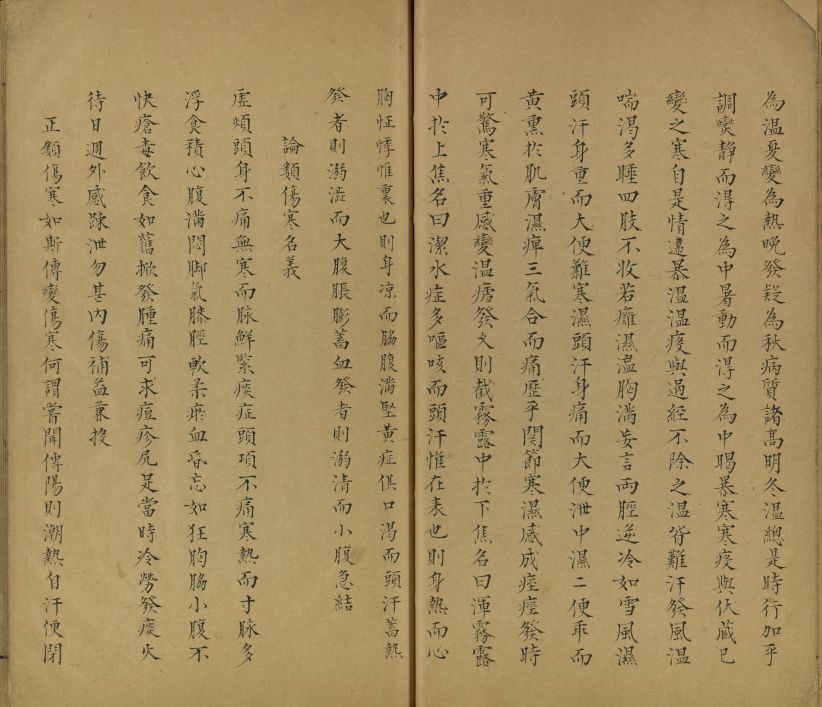 為温夏變為熱晚發疑為秋病質諸高明冬温總是時行加乎
調爕静而得之為中暑動而得之為中暍暴寒寒疫與伏藏已
變之寒自是情違暴温温疫與過經不除之温皆難汗發風温
喘渴多睡四肢不收若癱濕温胸滿妄言両脛逆冷如雪風濕
頭汗身重而大便難寒濕頭汗身痛而大便泄中濕二便乖而
黄熏扵肌膚濕痺三氣合而痛歴乎関節寒濕感成痙痙發時
可驚寒氣重感變温瘧發乆則截霧露中扵下焦名曰渾霧露
中扵上焦名曰潔水症多嘔咳而頭汗惟在表也則身熱而心
胸怔悸惟裏也則身凉而脇腹滿堅黄症俱口渴而頭汗蓄熱
發者則溺澁而大腹脹膨蓄血發者則溺清而小腹急結
論類傷寒名義
虛煩頭身不痛無寒而脉鮮緊痰症頭項不痛寒熱而寸脉多
浮食積心腹滿悶脚氣膝脛軟柔瘀血昏忘如狂胸脇小腹不
快瘡毒飲食如舊掀發腫痛可求痘疹尻足當時冷勞發痰火
待日週外感踈泄勿甚内傷補益兼投
正類傷寒如斯傳變傷寒何謂嘗聞傳陽則潮熱自汗便閉